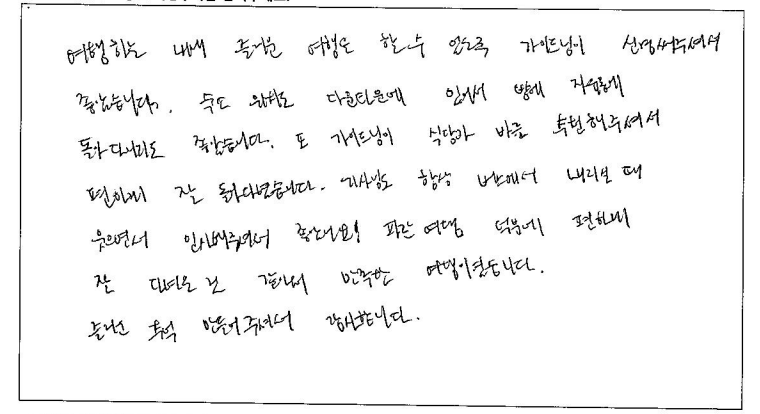 여행하는 내내 즐거운 여행도 할 수 있도록 가이드님이 신경써주셔서
좋았습니다. 숙소 위치도 다운타운에 있어서 밤에 자유롭게
돌아다니기도 좋았습니다. 또 가이드님이 식당과 바를 추천해주셔서
편하게 잘 돌아다녔습니다. 기사님도 항상 버스에서 내리실 때
웃으면서 인사해주셔서 좋았네요! 파란여행 덕분에 편하게
잘 다녀온 것 같아서 만족한 여행이었습니다.
추억 만들어주셔서 감사합니다.